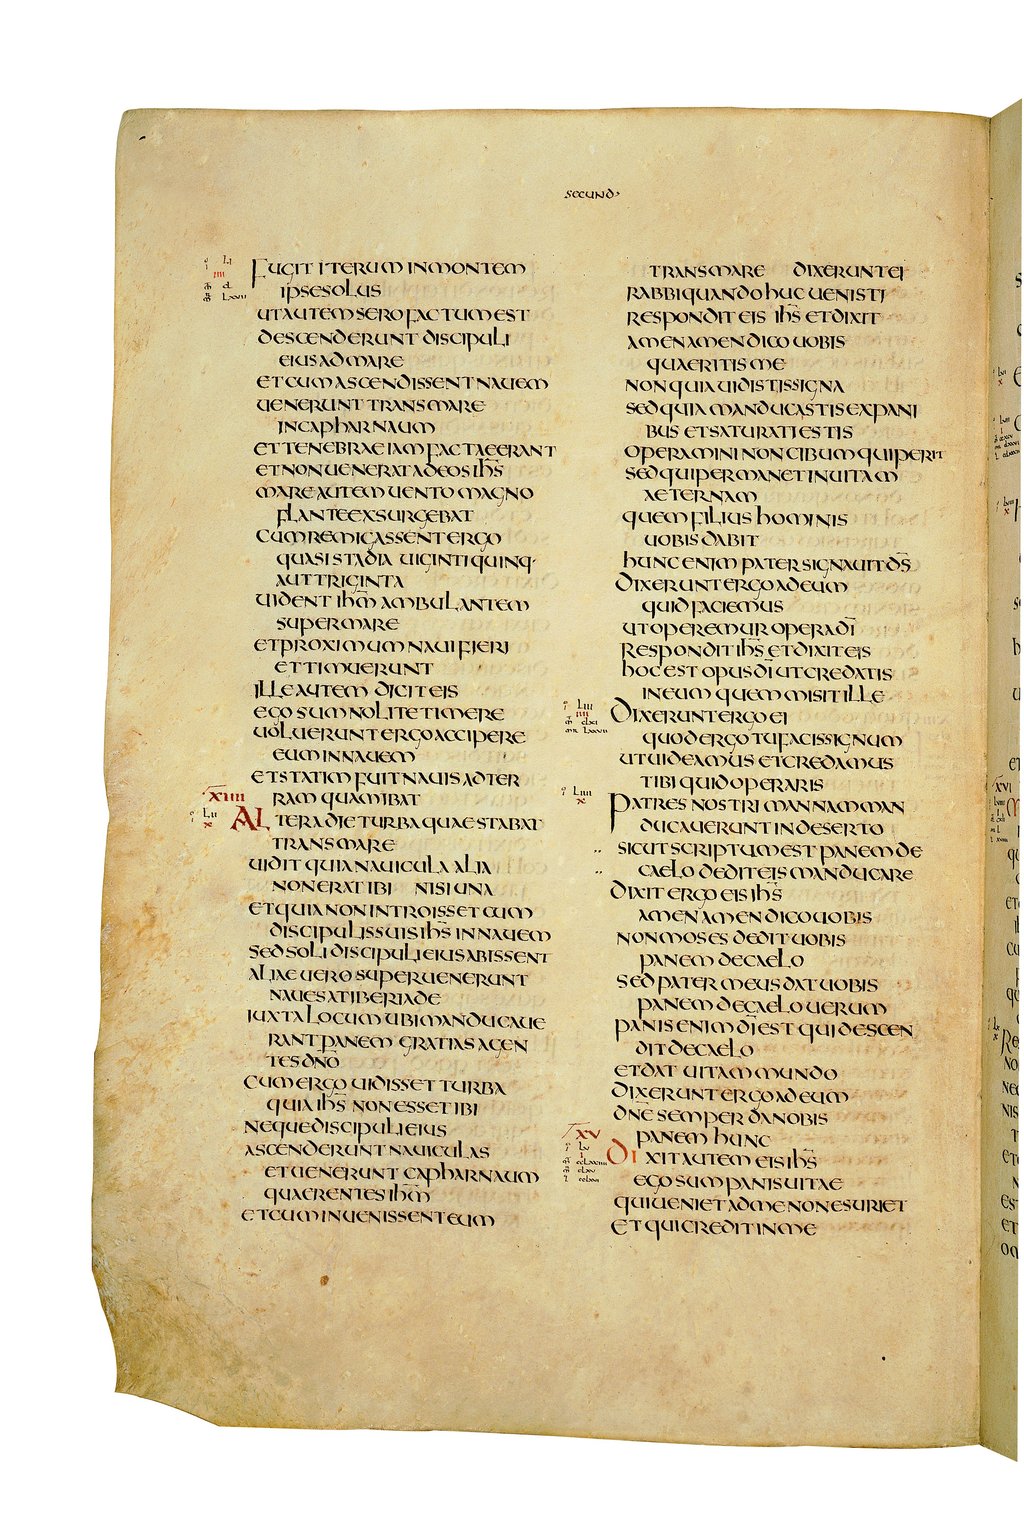 SECUND
FUGIT ITERUM IN MONTEM
IPSE SOLUS
UT AUTEM SERO FACTUM EST
DESCENDERUNT DISCIPULI
EIUS AD MARE
ET CUM ASCENDISSENT NAUEM
UENERUNT TRANS MARE
IN CAPHARNAUM
ET TENEBRAE IAM FACTAE ERANT
ET NON UENERAT AD EOS IHS̅
MARE AUTEM UENTO MAGNO
FLANTE EXSURGEBAT
CUM REMIGASSENT ERGO
QUASI STADIA UIGINTI QUINQ·
AUT TRIGINTA
UIDENT IHM̅ AMBULANTEM
SUPER MARE
ET PROXIMUM NAUI FIERI
ET TIMUERUNT
ILLE AUTEM DICIT EIS
EGO SUM NOLITE TIMERE
UOLUERUNT ERGO ACCIPERE
EUM IN NAUEM
ET STATIM FUIT NAUIS AD TER
RAM QUAM IBAT
XIIII
LII
X
ALTERA DIE TURBA QUAE STABAT
TRANS MARE
UIDIT QUIA NAUICULA ALIA
NON ERAT IBI NISI UNA
ET QUIA NON INTROISSET CUM
DISCIPULIS SUIS IHS̅ IN NAUEM
SED SOLI DISCIPULI EIUS ABISSENT
ALIAE UERO SUPERUENERUNT
NAUES A TIBERIADE
IUXTA LOCUM UBI MANDUCAUE
RANT PANEM GRATIAS AGEN
TES DN̅O
CUM ERGO UIDISSET TURBA
QUIA IHS̅ NON ESSET IBI
NEQUE DISCIPULI EIUS
ASCENDERUNT NAUICULAS
ET UENERUNT CAPHARNAUM
QUAERENTES IHM̅
ET CUM INUENISSENT EUM
TRANS MARE DIXERUNT EI
RABBI QUANDO HUC UENISTI
RESPONDIT EIS IHS̅ ET DIXIT
AMEN AMEN DICO UOBIS
QUAERITIS ME
NON QUIA UIDISTIS SIGNA
SED QUIA MANDUCASTIS EX PANI
BUS ET SATURATI ESTIS
OPERAMINI NON CIBUM QUI PERIT
SED QUI PERMANET IN UITAM
AETERNAM
QUEM FILIUS HOMINIS
UOBIS DABIT
HUNC ENIM PATER SIGNAUIT DS̅
DIXERUNT ERGO AD EUM
QUID FACIEMUS
UT OPEREMUR OPERA DI̅
RESPONDIT IHS̅ ET DIXIT EIS
HOC EST OPUS DI̅ UT CREDATIS
IN EUM QUEM MISIT ILLE
LIII
IIII
DIXERUNT ERGO EI
QUOD ERGO TU FACIS SIGNUM
UT UIDEAMUS ET CREDAMUS
TIBI QUID OPERARIS
LIIII
X
PATRES NOSTRI MANNA MAN
DUCAUERUNT IN DESERTO
SICUT SCRIPTUM EST PANEM DE
CAELO DEDIT EIS MANDUCARE
DIXIT ERGO EIS IHS̅
AMEN AMEN DICO UOBIS
NON MOSES DEDIT UOBIS
PANEM DE CAELO
SED PATER MEUS DAT UOBIS
PANEM DE CAELO UERUM
PANIS ENIM DI̅ EST QUI DESCEN
DIT DE CAELO
ET DAT UITAM MUNDO
DIXERUNT ERGO AD EUM
DN̅E SEMPER DA NOBIS
PANEM HUNC
XV
LV
I
DIXIT AUTEM EIS IHS̅
EGO SUM PANIS UITAE
QUI UENIET AD ME NON ESURIET
ET QUI CREDIT IN ME
XVI